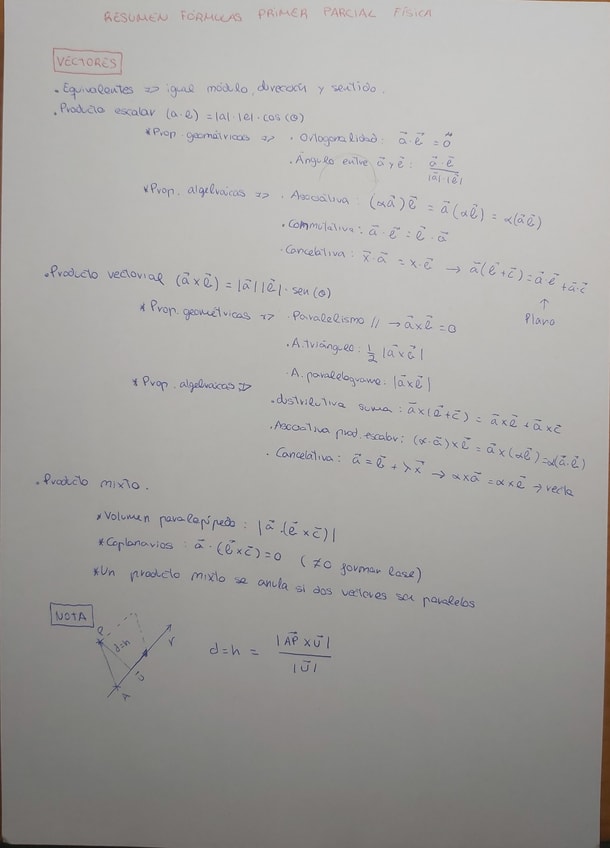 RESUMEN FÓRMULAS PRIMER PARCIAL FÍSICA
VECTORES
. Equivalentes => igual módulo, dirección y sentido.
. Producto escalar (a·b) = |a|·|b|·cos(θ)
* Prop. geométricas => . Ortogonalidad: a⃗·b⃗ = 0⃗
. Ángulo entre a⃗ y b⃗: a⃗·b⃗ / |a⃗|·|b⃗|
* Prop. algebraicas => . Asociativa: (αa⃗)b⃗ = a⃗(αb⃗) = α(a⃗b⃗)
. Conmutativa: a⃗·b⃗ = b⃗·a⃗
. Cancelativa: x⃗·a⃗ = x·b⃗ → a⃗(b⃗+c⃗) = a⃗·b⃗ + a⃗·c⃗
↑
Plano
. Producto vectorial (a⃗×b⃗) = |a⃗||b⃗|·sen(θ)
* Prop. geométricas => . Paralelismo // → a⃗×b⃗ = 0
. A. triángulo: 1/2 |a⃗×b⃗|
. A. paralelogramo: |a⃗×b⃗|
* Prop. algebraicas =>
. distributiva suma: a⃗×(b⃗+c⃗) = a⃗×b⃗ + a⃗×c⃗
. Asociativa prod. escalar: (α·a⃗)×b⃗ = a⃗×(αb⃗) = α(a⃗·b⃗)
. Cancelativa: a⃗ = b⃗ + λx⃗ → α×a⃗ = α×b⃗ → recta
. Producto mixto.
* Volumen paralepípedo: |a⃗·(b⃗×c⃗)|
* Coplanarios: a⃗·(b⃗×c⃗) = 0 (≠0 formar base)
* Un producto mixto se anula si dos vectores son paralelos
NOTA
P
d=h
r
u⃗
A
d=h = |AP⃗ × u⃗| / |u⃗|